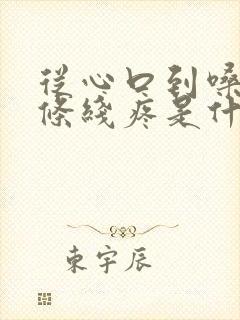 從心口到嗓
條綫疼是什
東宇辰